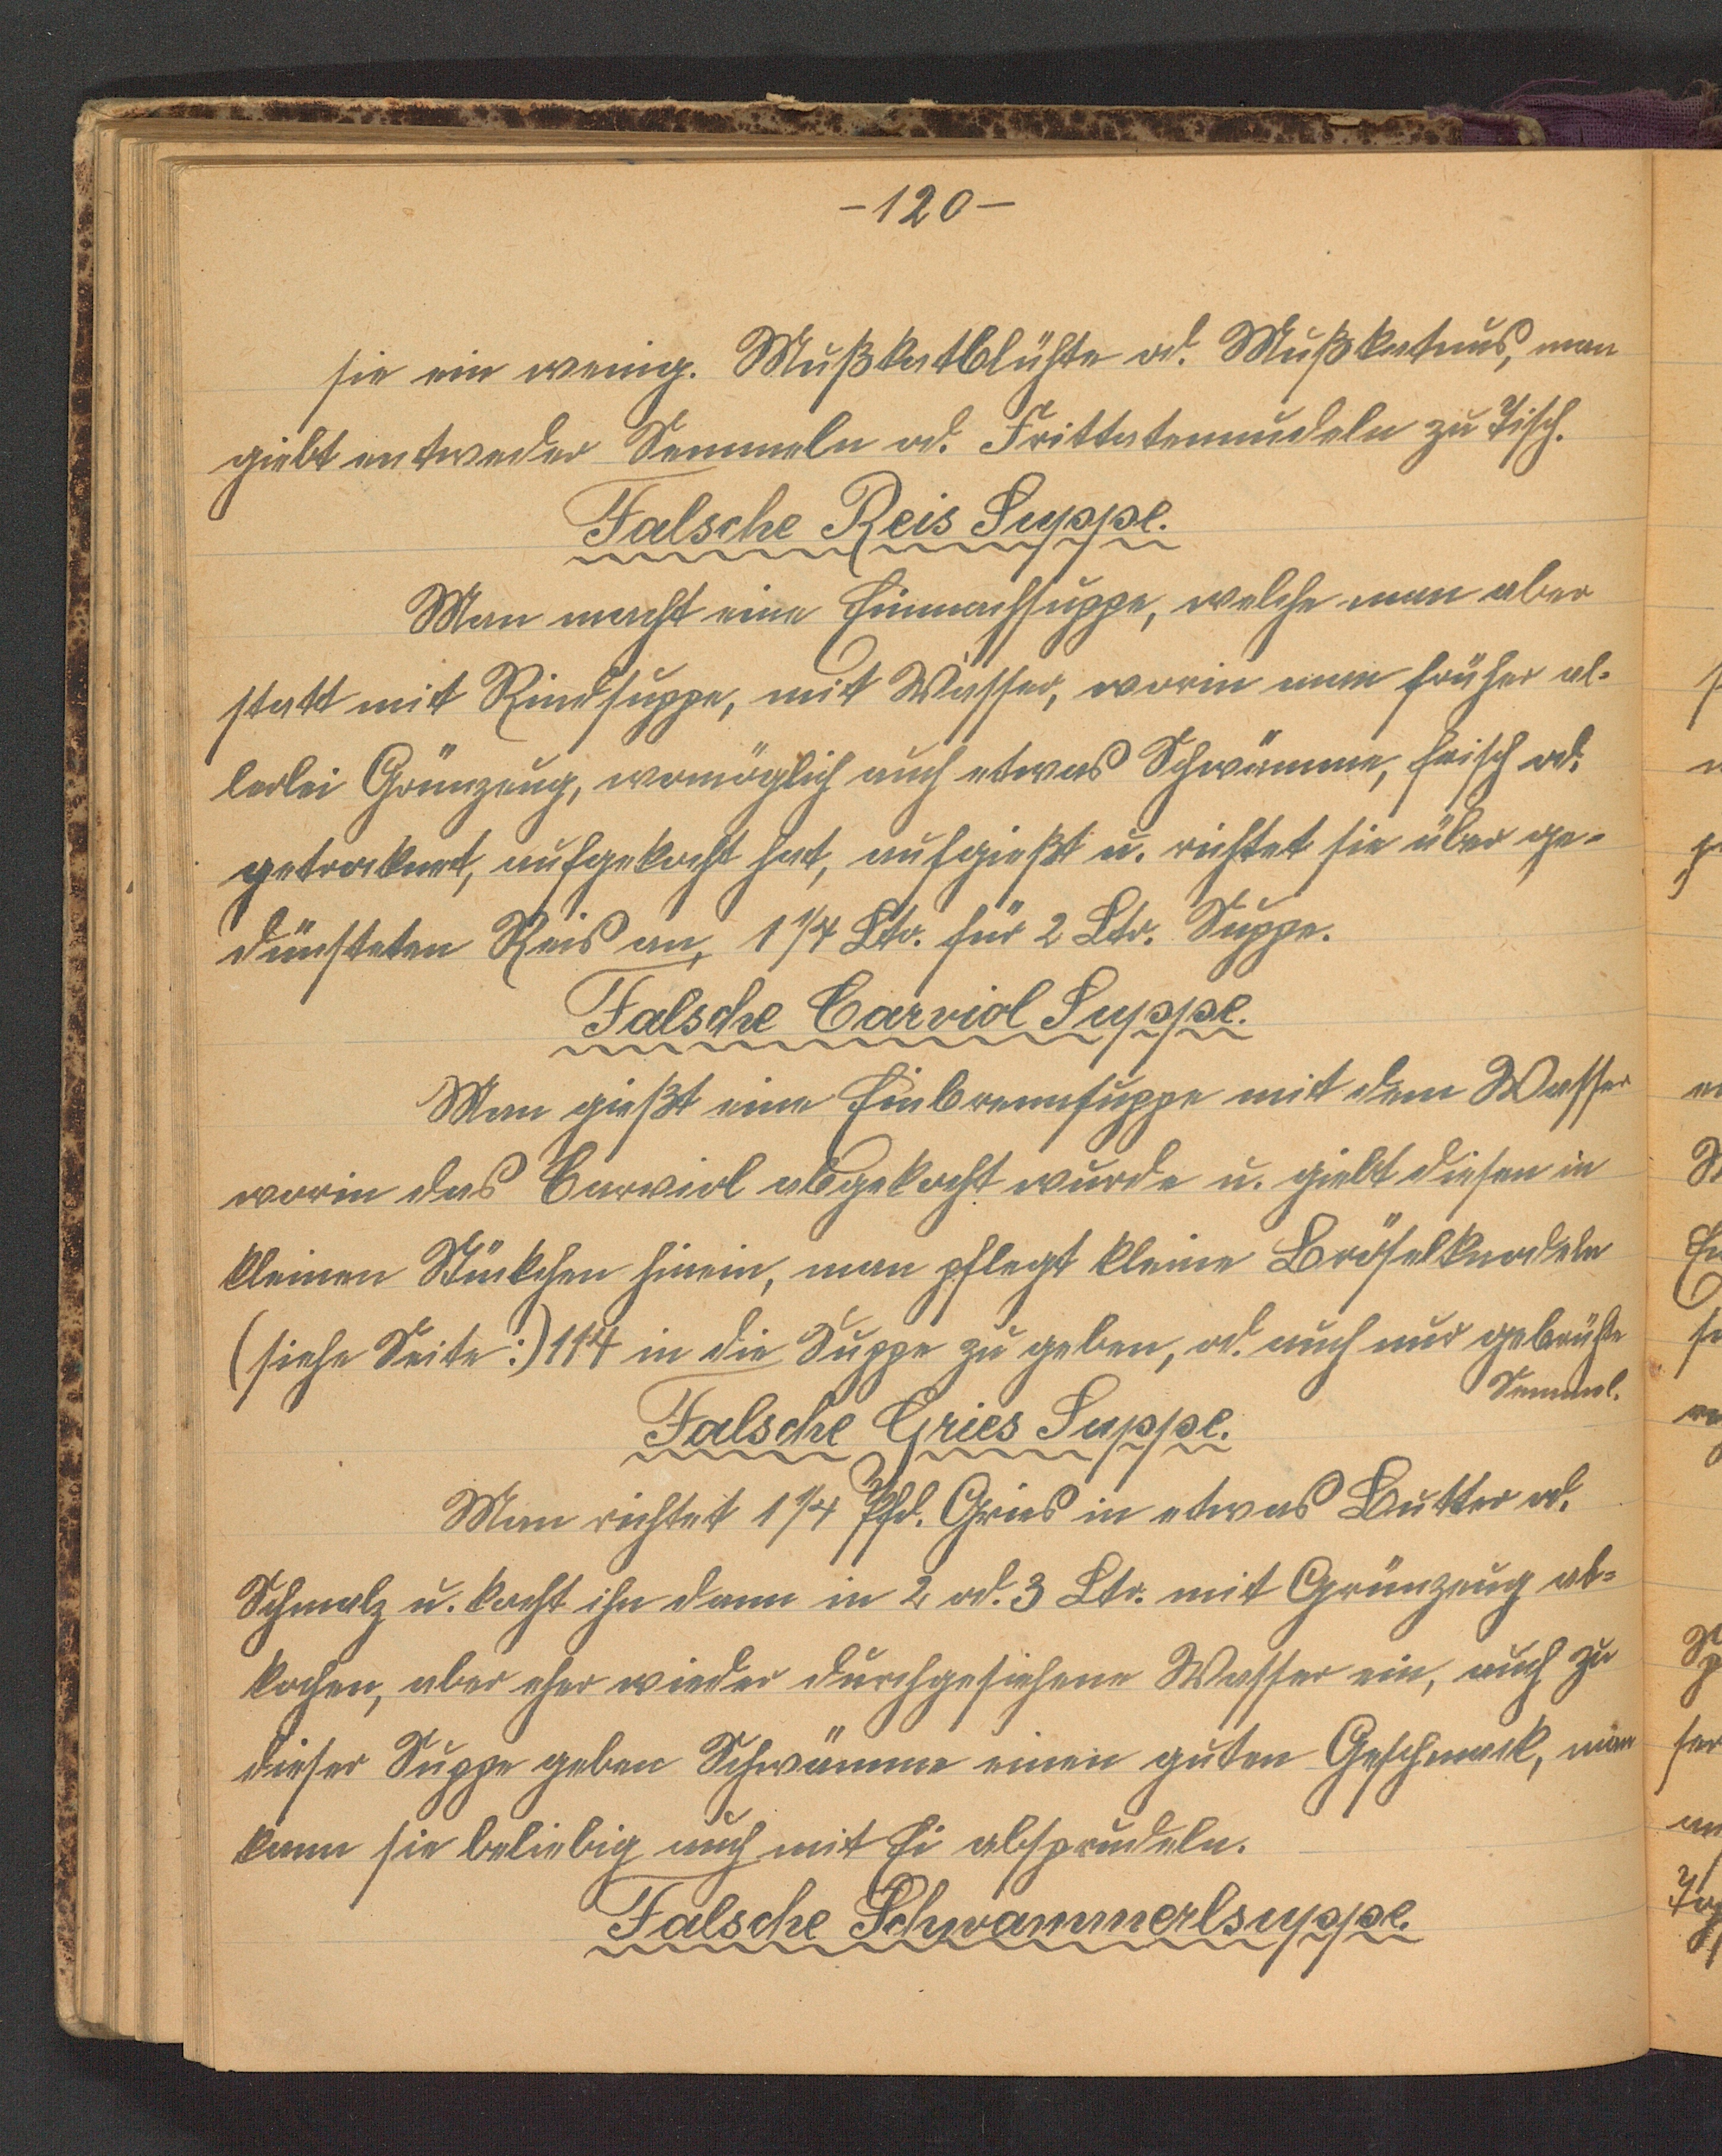 -120-
sie ein wenig. Mußkatblühte od. Mußkatnus, man
giebt entweder Semmeln od. Frittatennudeln zu Tisch.
Falsche Reis Suppe.
Man macht eine Einmachsuppe, welche man aber
statt mit Rindsuppe, mit Wasser, worin man früher al-
lerlei Grünzeug, womöglich auch etwas Schwämme, frisch od.
getrocknet, aufgekocht hat, aufgießt u. richtet sie über ge-
dünsteten Reis an, 1 1/4 Ltr. für 2 Ltr. Suppe.
Falsche Carviol Suppe.
Man gießt eine Einbrennsuppe mit dem Wasser
worin das Carviol abgekocht wurde u. giebt diesen in
kleinen Stückchen hinein, man pflegt kleine Bröselknodeln
(siehe Seite:) 114 in die Suppe zu geben, od. auch nur gebrühte
Semmel.
Falsche Gries Suppe.
Man richtet 1 1/4 Pfd. Gries in etwas Butter od.
Schmalz u. kocht ihn dann in 2 od. 3 Ltr. mit Grünzeug ab-
kochen, aber eher wieder durchgesiehene Wasser ein, auch zu
dieser Suppe geben Schwämme einen guten Geschmack, man
kann sie beliebig auch mit Ei absprudeln.
Falsche Schwammerlsuppe.